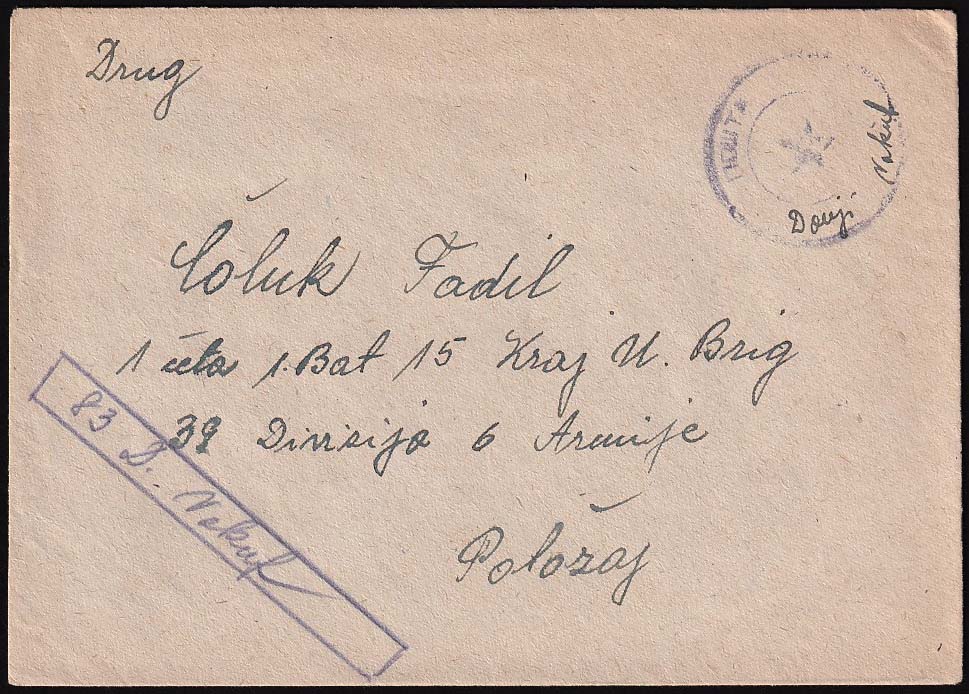 Drug
Donji Vakuf
Čoluk Fadil
1 četa 1. Bat 15 Kraj U. Brig
39 Divizija 6 Armije
Položaj
83 D. Vakuf